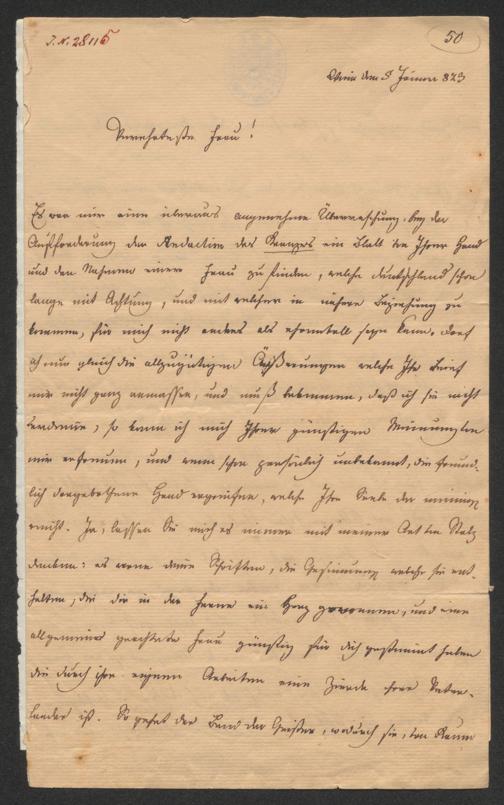 I. N. 28115
50
Wien den 8 Jänner 823
Verehrteste Frau!
Es war mir eine überaus angenehme Überraschung, bey der
Aufforderung der Redaction des Kranzes ein Blatt von Ihrer Hand
und den Nahmen einer Frau zu finden, welche Deutschland schon
lange mit Achtung, und mit welcher in nähere Beziehung zu
kommen, für mich nicht anders als ehrenvoll seyn kann. Darf
ich nun gleich die allzugütigen Äußerungen welche Ihr Brief
mir nicht ganz anmassen, und muß bekennen, daß ich sie nicht
verdiene, so kann ich mich Ihrer günstigen Meinung
mir erfreuen, und wenn schon persönlich unbekannt, die freund-
lich dargebothene Hand ergreifen, welche Ihre Seele der meinigen
reicht. Ja, lassen Sie mich es immer mit einer Art von Stolz
denken: es waren deine Schriften, die Gesinnung welche sie ent-
halten, die dir in der Ferne ein Herz gewonnen, und eine
allgemein geachtete Frau günstig für dich gestimmt haben
die durch ihre eigenen Arbeiten eine Zierde ihres Vater-
landes ist. So gehet der Bund der Geister, wodurch sie, von Raum